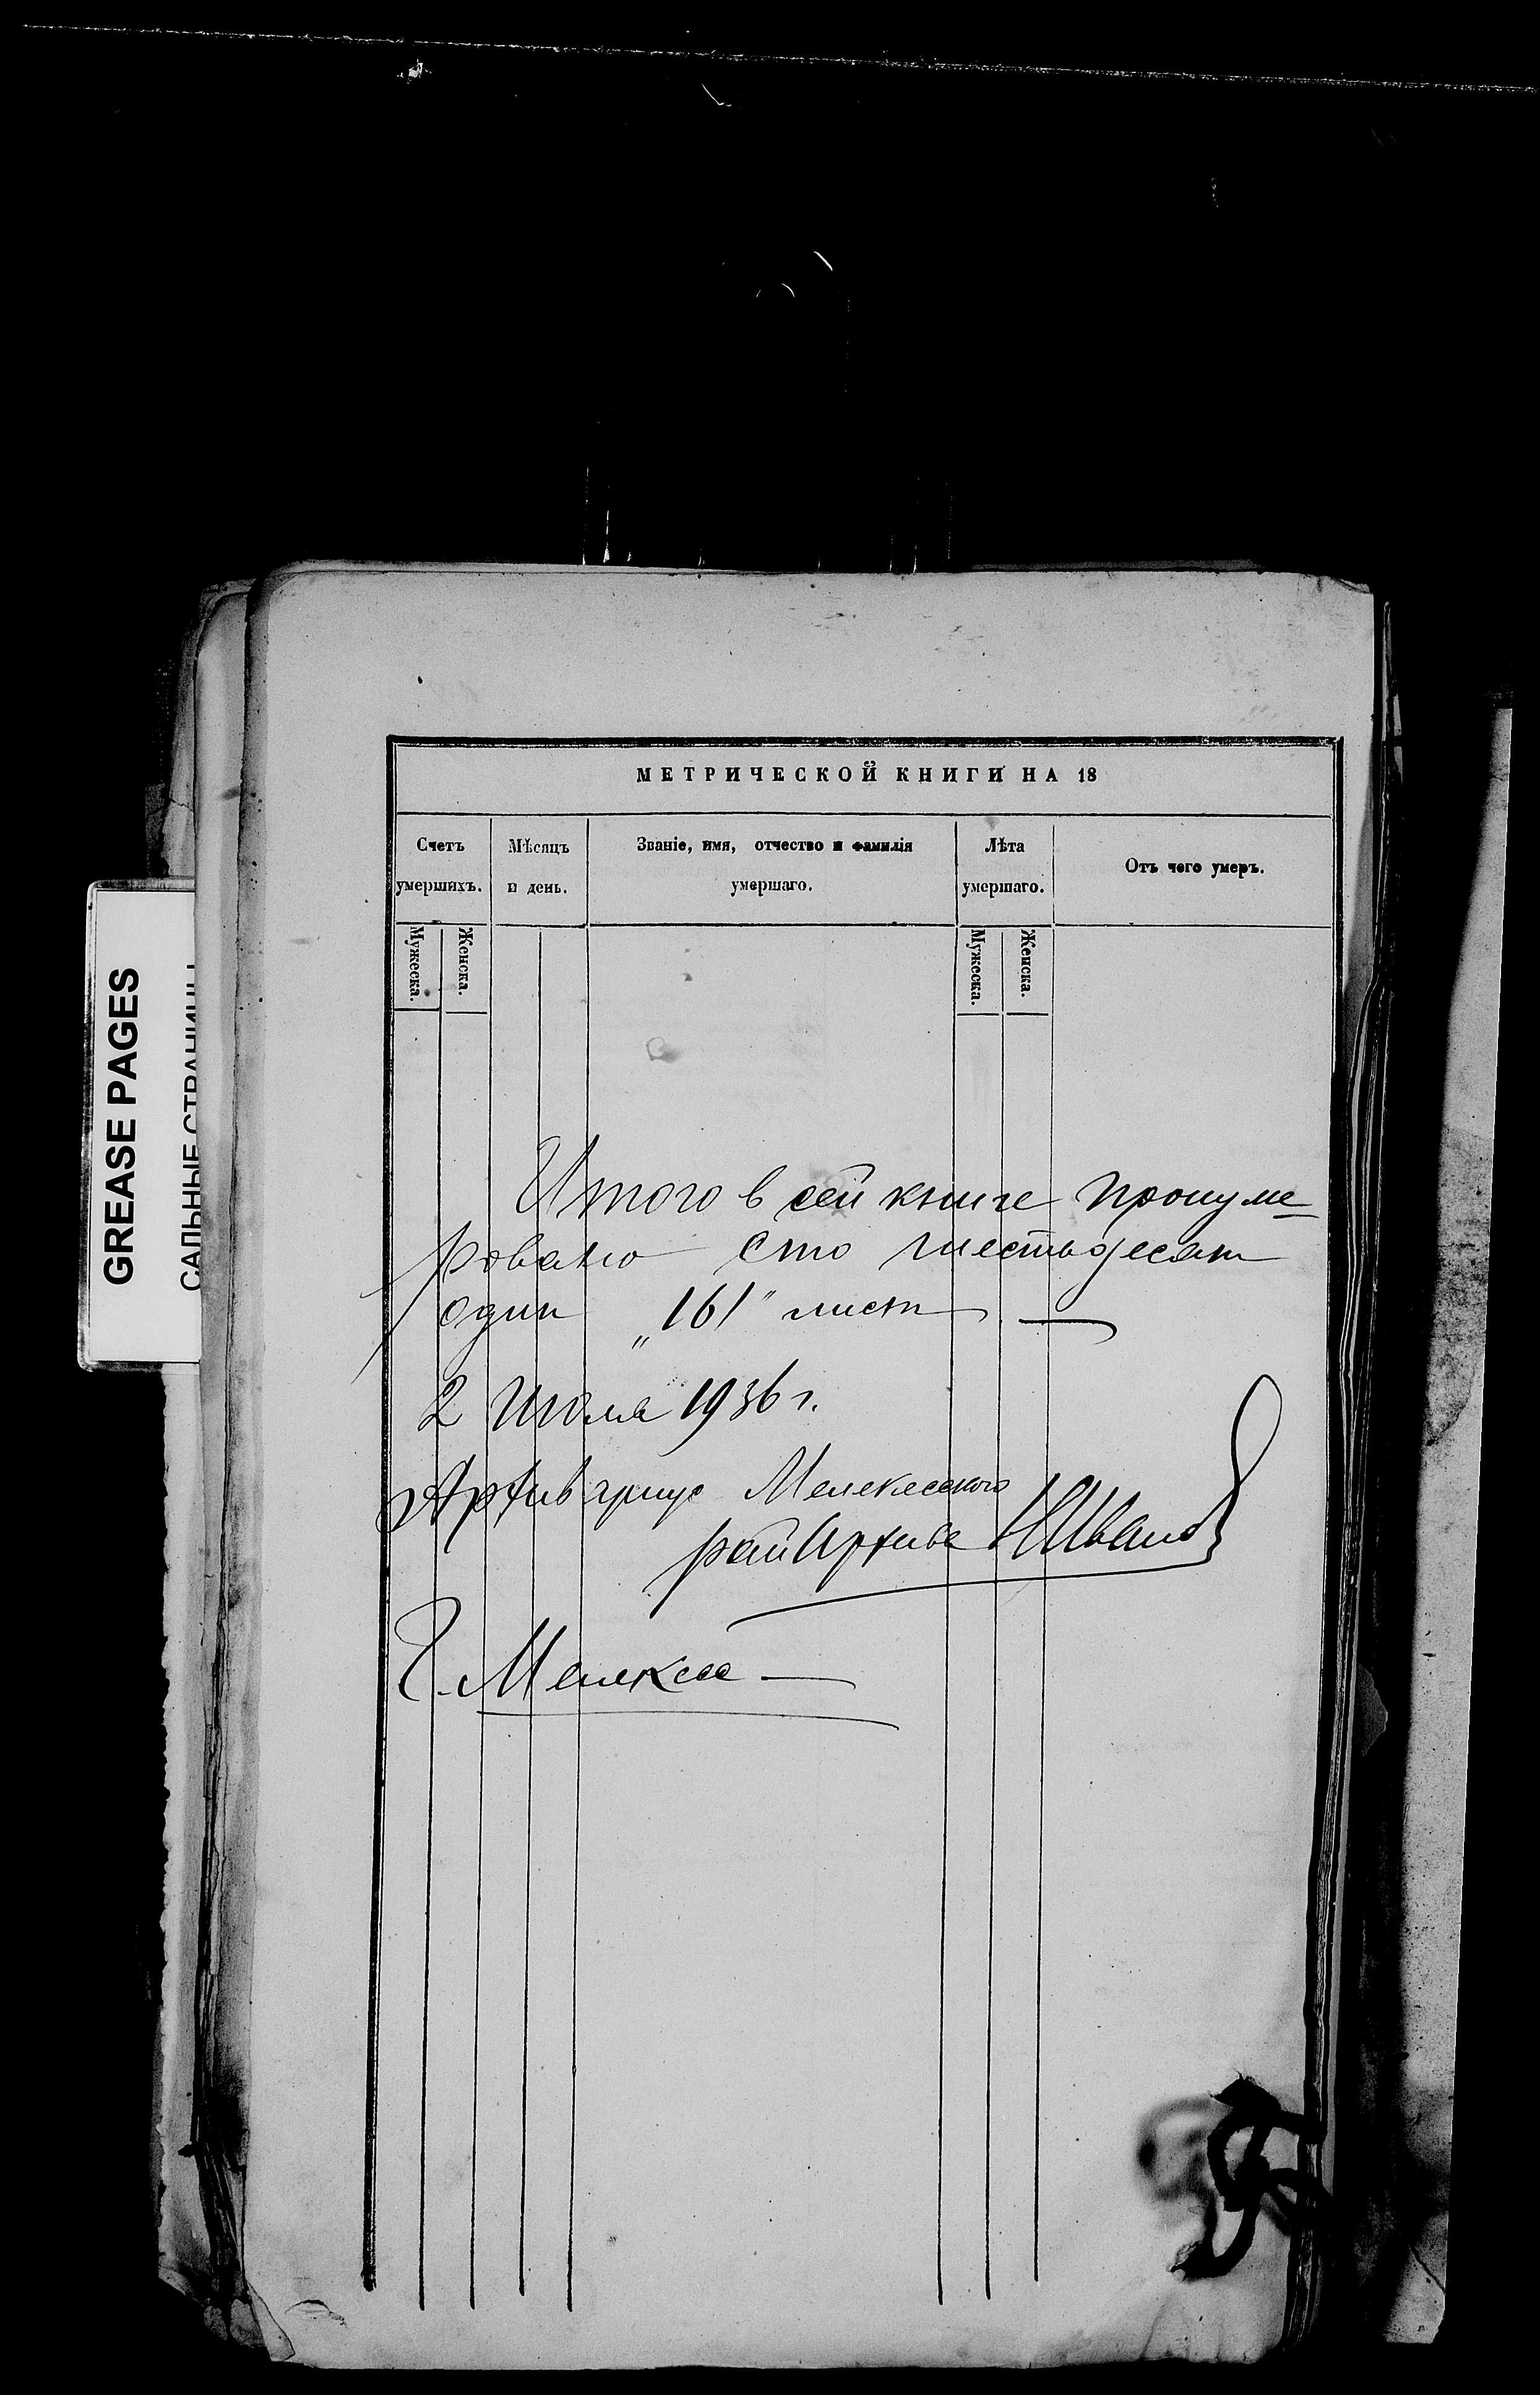 GREASE PAGES
САЛЬНЫЕ СТРАНИЦЫ
МЕТРИЧЕСКОЙ КНИГИ НА 18
Счетъ умершихъ.
Мужеска.
Женска.
Мѣсяцъ и день.
Званіе, имя, отчество и фамилія умершаго.
Лѣта умершаго.
Мужеска.
Женска.
Отъ чего умеръ.
Итого в сей книге пронуме-
ровано сто шестьдесят
один „161" лист —
2 Июля 1936 г.
Архивариус Мелекесского
райАрхива НИванов
г. Мелекесс —